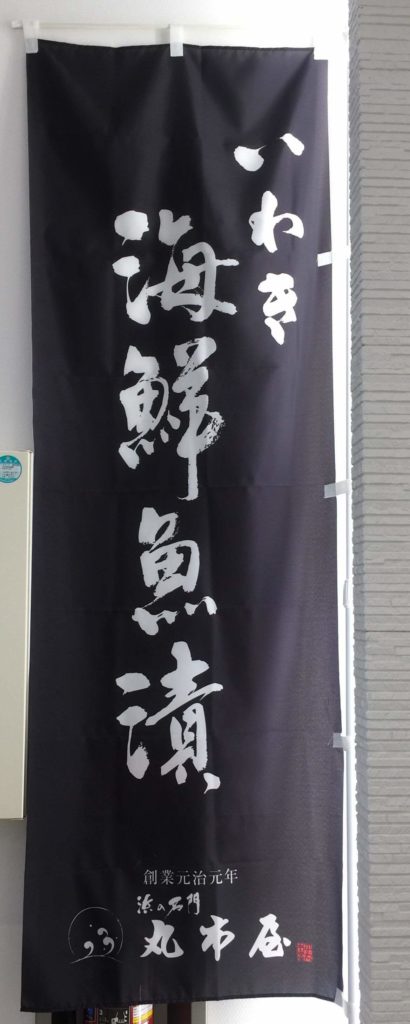 いわき
海鮮魚漬
創業元治元年
浜の名門
丸市屋